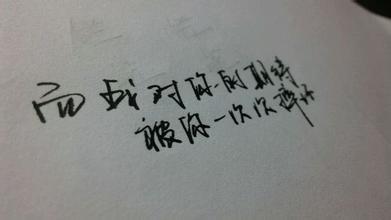 而我对你的期待
被你一次次摔坏